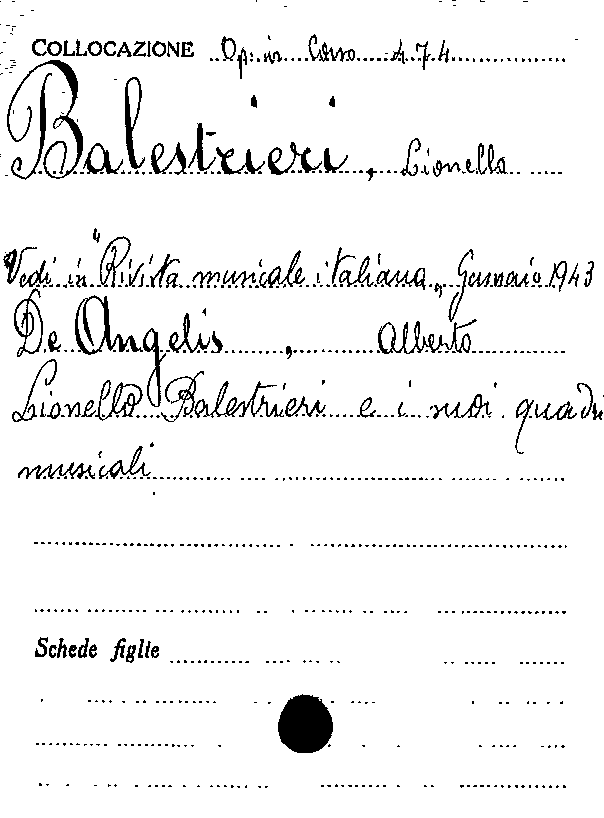 COLLOCAZIONE Op. in Corso 474
Balestrieri, Lionello
Vedi in "Rivista musicale italiana„ Gennaio 1943
De Angelis, Alberto
Lionello Balestrieri e i suoi quadri
musicali
Schede figlie